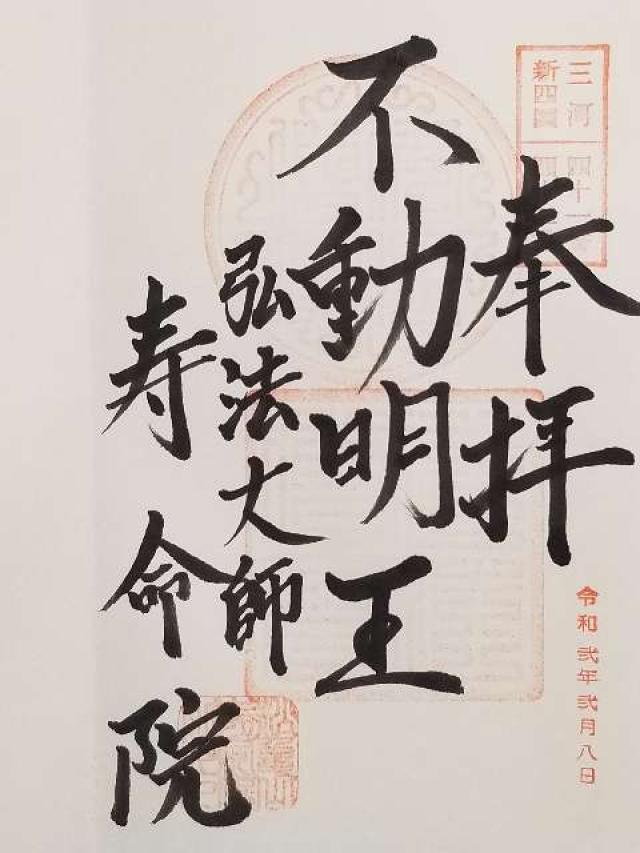 三河
新四國
四十一
奉拝
令和弐年弐月八日
不動明王
弘法大師
寿命院